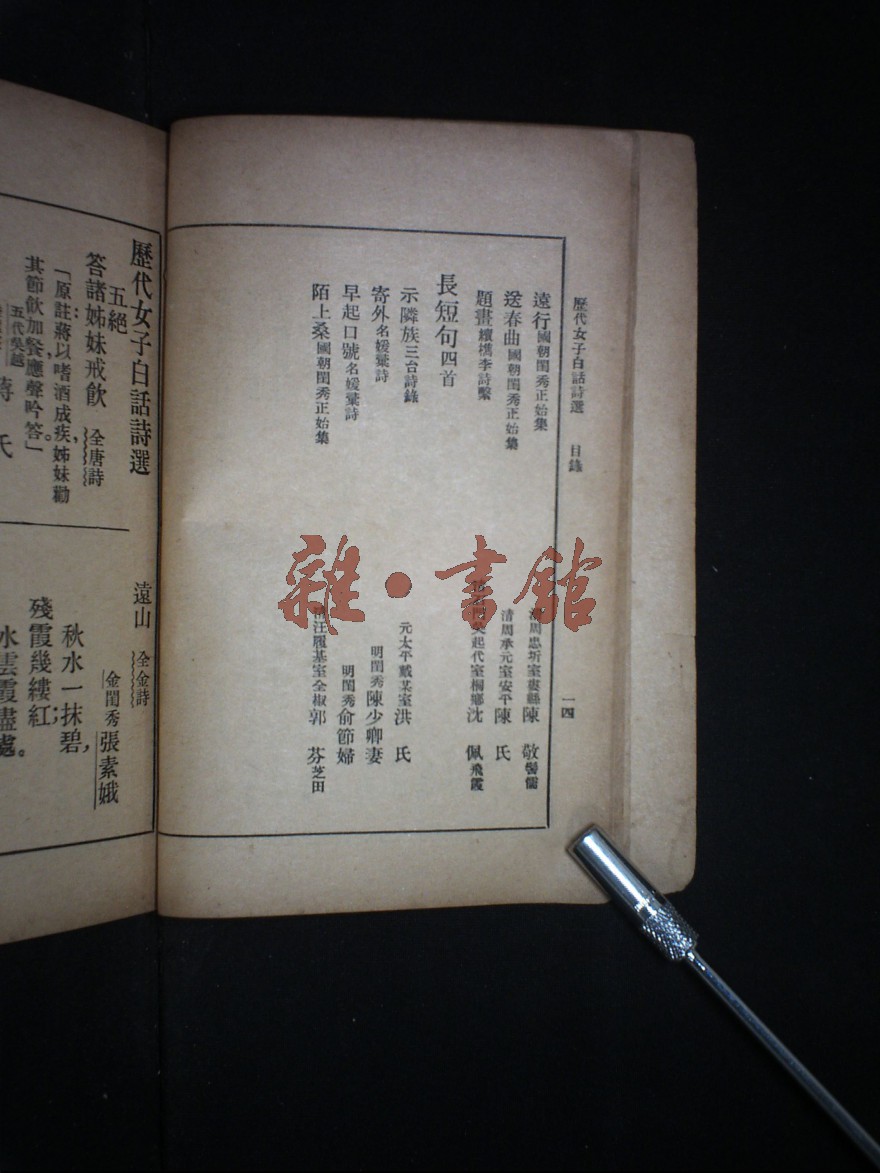 歷代女子白話詩選　目錄　一四
遠行國朝閨秀正始集　周忠圻室婁縣陳　敬馨儒
送春曲國朝閨秀正始集　清周承元室安平陳　氏
題畫續檇李詩繫　起代室桐鄉沈　佩飛霞
長短句四首
示隣族三台詩錄　元太平戴某室洪　氏
寄外名媛彙詩　明閨秀陳少卿妻
早起口號名媛彙詩　明閨秀俞節婦
陌上桑國朝閨秀正始集　汪履基室全椒郭　芬芝田
雜·書館
歷代女子白話詩選
五絕
答諸姊妹戒飲　全唐詩
「原註蔣以嗜酒成疾，姊妹勸
其節飲加餐，應聲吟答。」
五代吳越
蔣　氏
遠山　全金詩
金閨秀張素娥
秋水一抹碧，
殘霞幾縷紅；
水雲霞盡處。